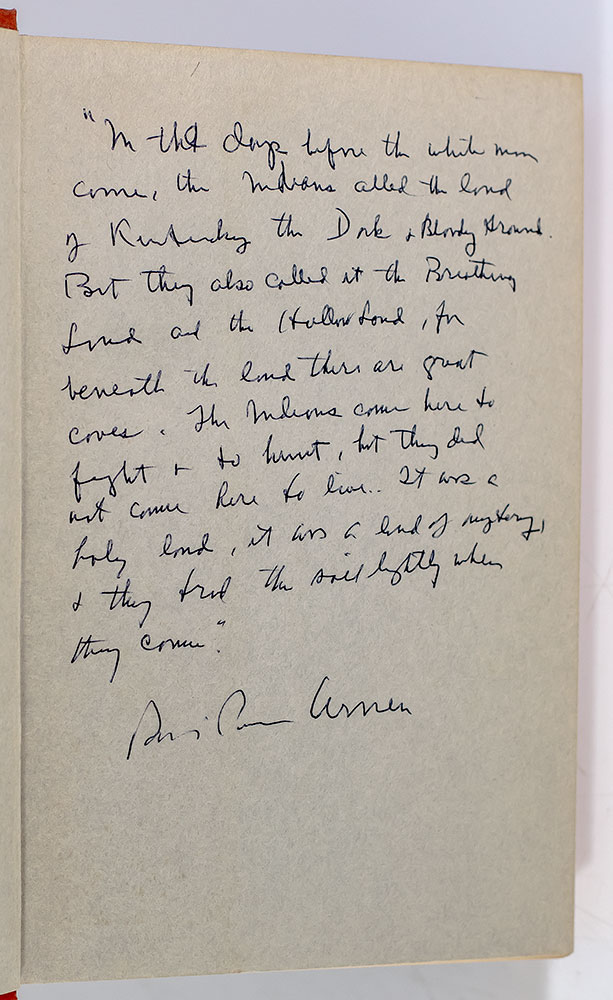 "In the days before the white man
came, the Indians called the land
of Kentucky the Dark & Bloody Ground.
But they also called it the Breathing
Land and the Hollow Land, for
beneath the land there are great
caves. The Indians came here to
fight & to hunt, but they did
not come here to live.. It was a
holy land, it was a land of mystery,
& they trod the soil lightly when
they came."